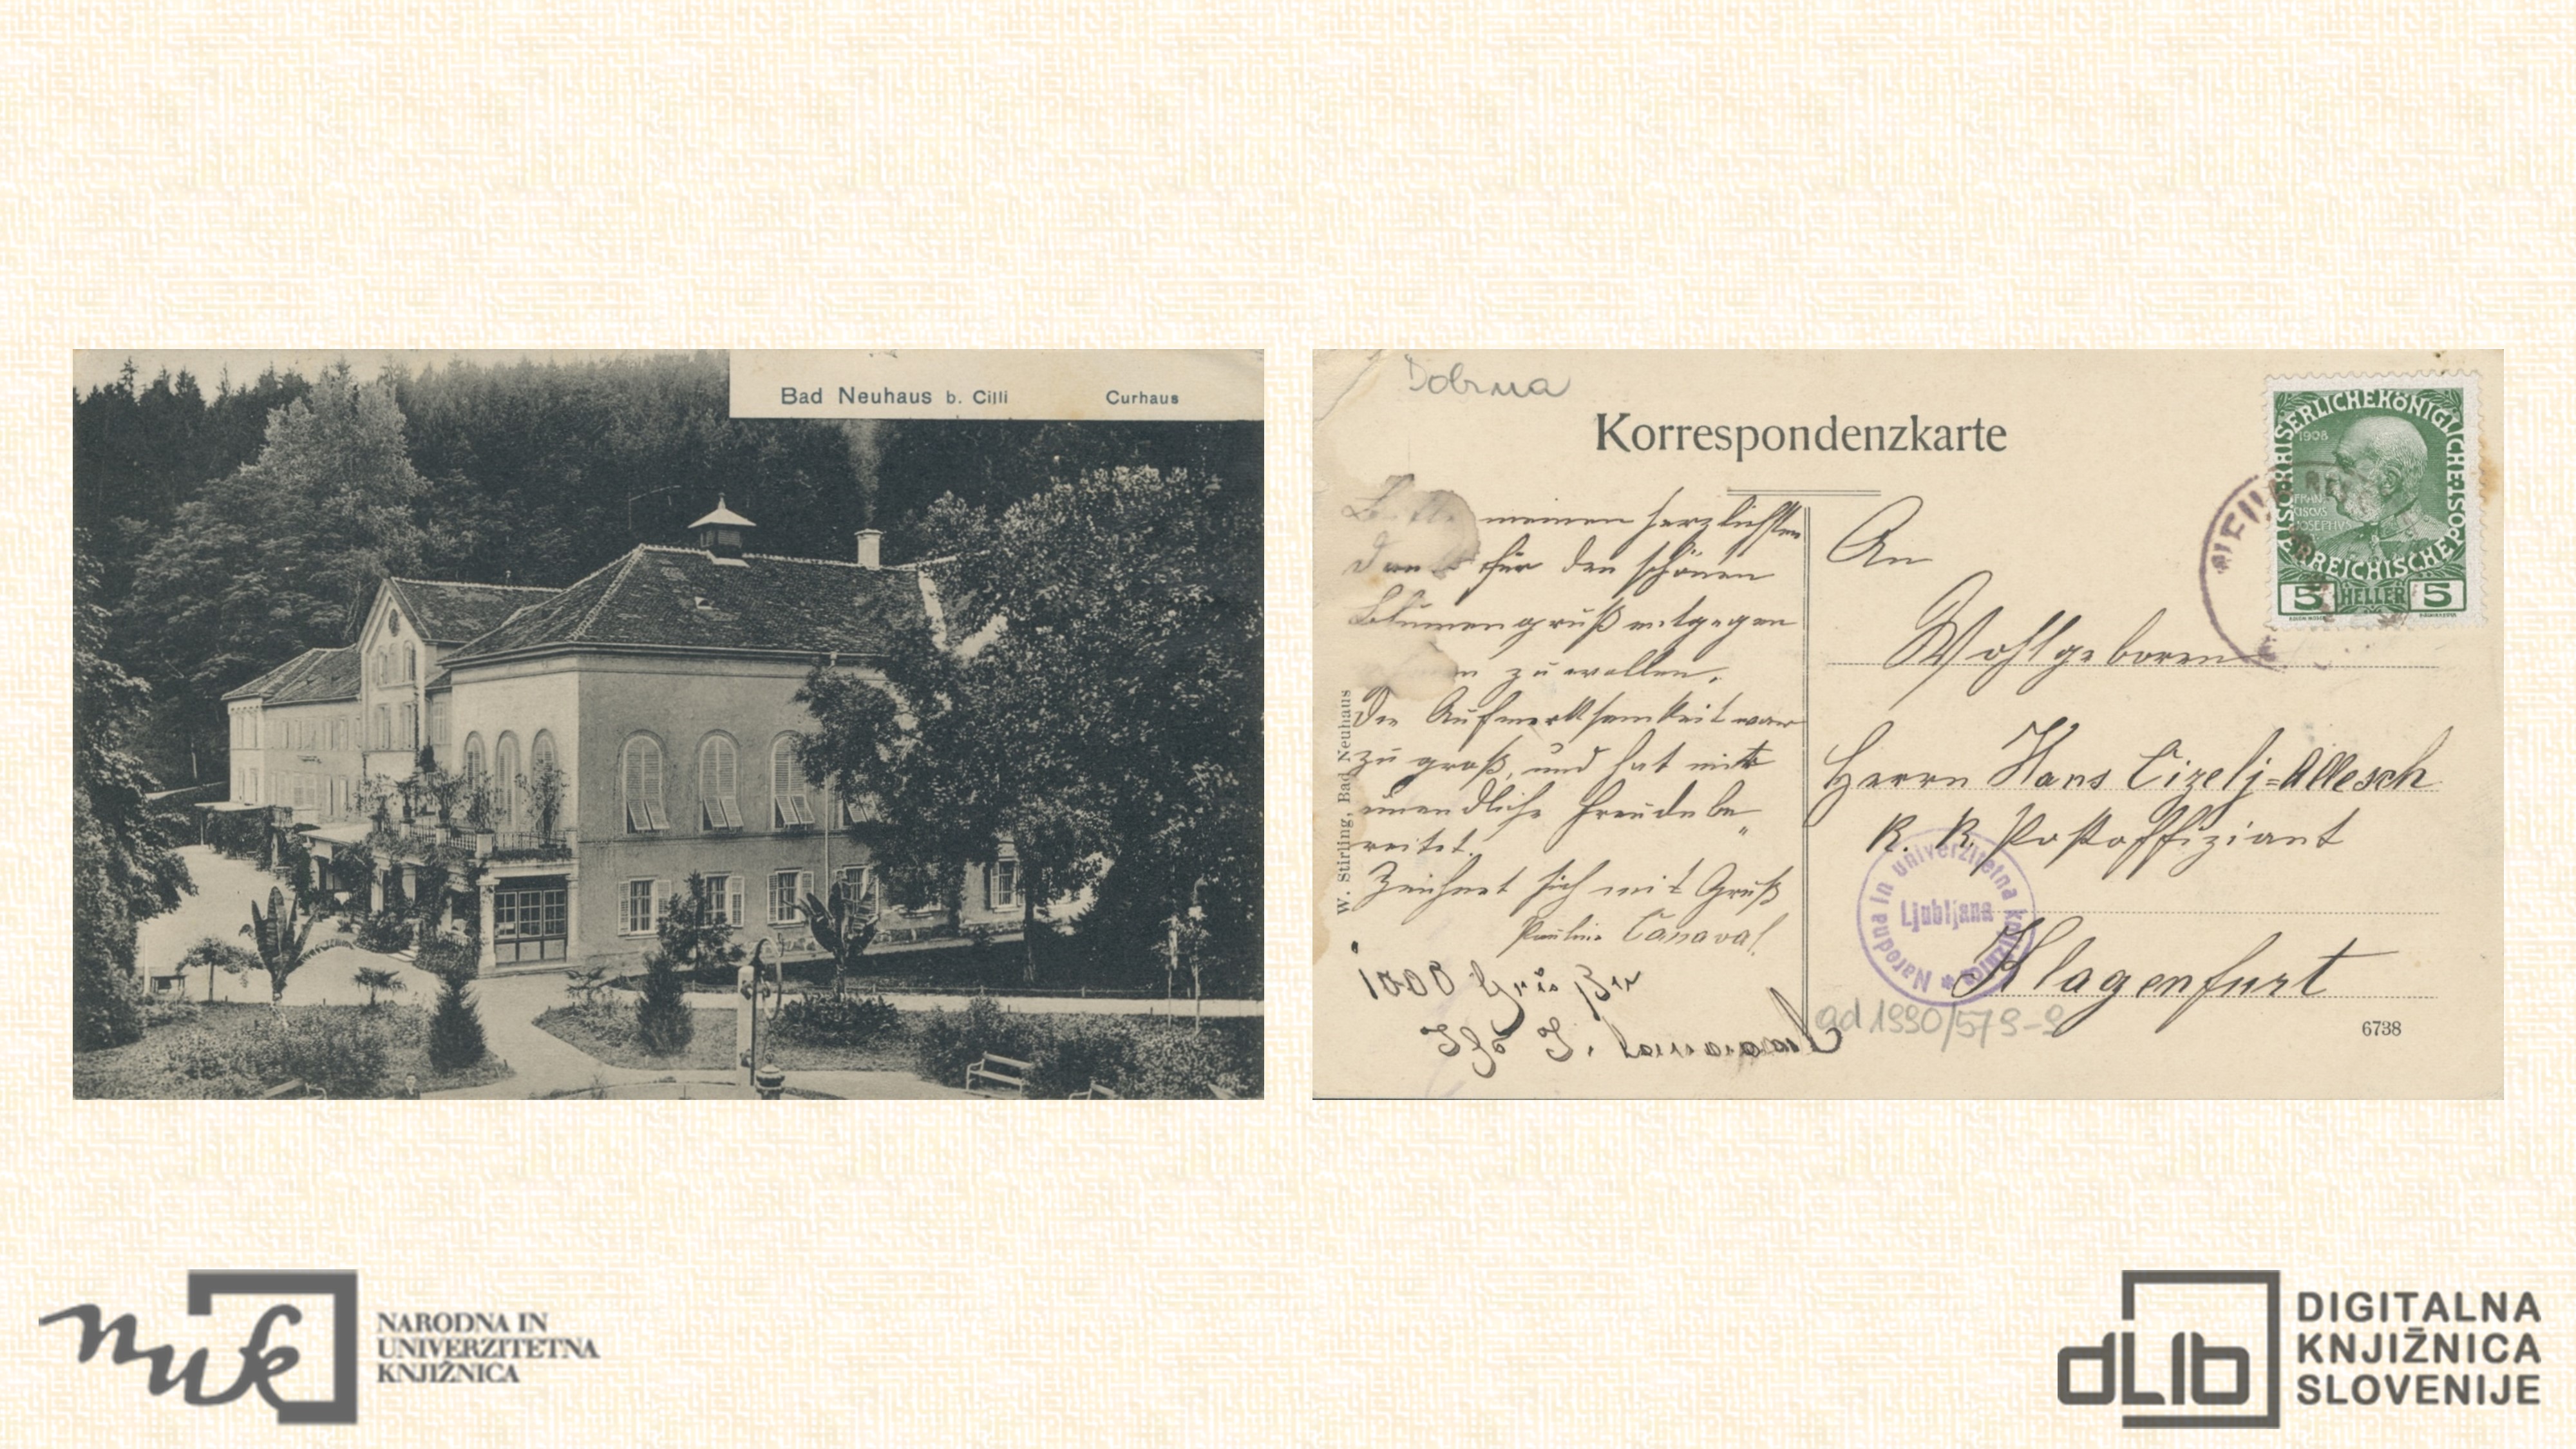 Bad Neuhaus b. Cilli Curhaus
Dobrna
Korrespondenzkarte
meinen herzlichsten
Dank für den schönen
Blumengruß entgegen
zu wollen.
Die Aufmerksamkeit war
zu groß, und hat mir
unendliche Freude be„
reitet.
Zeichnet sich mit Gruß
Pauline Canaval.
1000 Grüße
J. Canaval
W. Stirling, Bad Neuhaus
KAISERLICHEKÖNIGLICHE ÖSTERREICHISCHE POST
1908
FRAN
CISCUS
JOSEPHVS
5 HELLER 5
NEUH
An
Wohlgeboren
Herrn Hans Cizelj=Allesch
K. K. Postoffiziant
Klagenfurt
Narodna in univerzitetna knjižnica
Ljubljana
ad 1990/579-9
6738
nuk
NARODNA IN
UNIVERZITETNA
KNJIŽNICA
dLib
DIGITALNA
KNJIŽNICA
SLOVENIJE